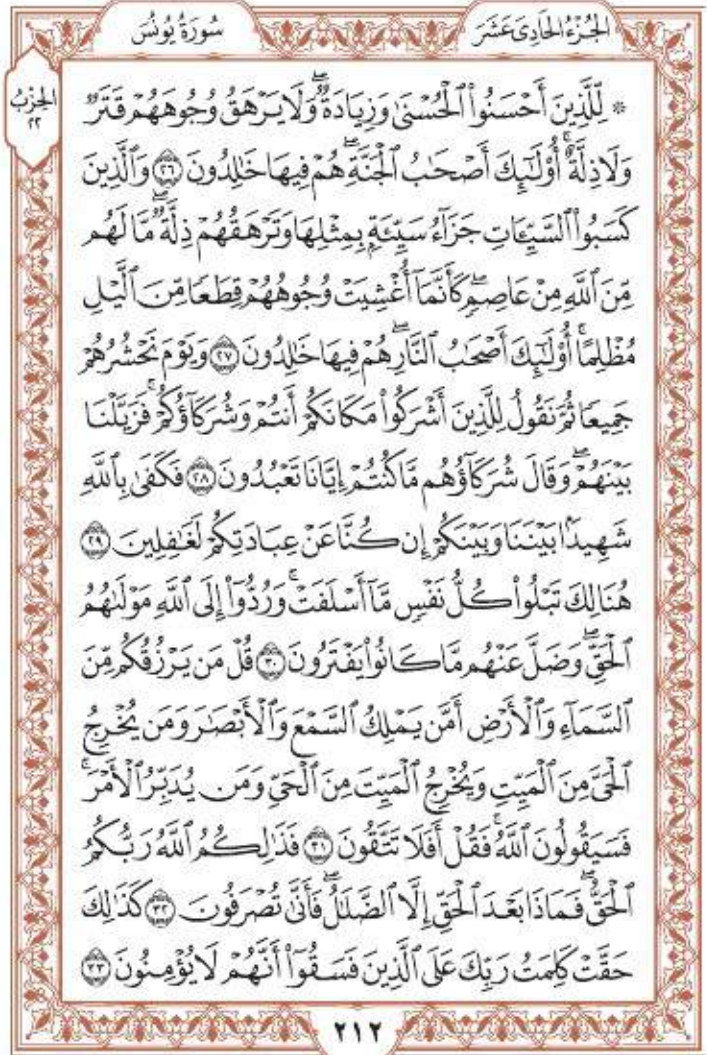 الجُزْءُ الحَادِى عَشَرَ
سُورَةُ يُونُسَ
الحِزْبُ
٢٢
۞ لِّلَّذِينَ أَحْسَنُواْ ٱلْحُسْنَىٰ وَزِيَادَةٌۖ وَلَا يَرْهَقُ وُجُوهَهُمْ قَتَرٌ
وَلَا ذِلَّةٌۚ أُوْلَٰٓئِكَ أَصْحَٰبُ ٱلْجَنَّةِۖ هُمْ فِيهَا خَٰلِدُونَ ٢٦ وَٱلَّذِينَ
كَسَبُواْ ٱلسَّيِّـَٔاتِ جَزَآءُ سَيِّئَةِۭ بِمِثْلِهَا وَتَرْهَقُهُمْ ذِلَّةٌۖ مَّا لَهُم
مِّنَ ٱللَّهِ مِنْ عَاصِمٍۖ كَأَنَّمَآ أُغْشِيَتْ وُجُوهُهُمْ قِطَعًا مِّنَ ٱلَّيْلِ
مُظْلِمًاۚ أُوْلَٰٓئِكَ أَصْحَٰبُ ٱلنَّارِۖ هُمْ فِيهَا خَٰلِدُونَ ٢٧ وَيَوْمَ نَحْشُرُهُمْ
جَمِيعًا ثُمَّ نَقُولُ لِلَّذِينَ أَشْرَكُواْ مَكَانَكُمْ أَنتُمْ وَشُرَكَآؤُكُمْۚ فَزَيَّلْنَا
بَيْنَهُمْۖ وَقَالَ شُرَكَآؤُهُم مَّا كُنتُمْ إِيَّانَا تَعْبُدُونَ ٢٨ فَكَفَىٰ بِٱللَّهِ
شَهِيدًۢا بَيْنَنَا وَبَيْنَكُمْ إِن كُنَّا عَنْ عِبَادَتِكُمْ لَغَٰفِلِينَ ٢٩
هُنَالِكَ تَبْلُواْ كُلُّ نَفْسٍ مَّآ أَسْلَفَتْۚ وَرُدُّوٓاْ إِلَى ٱللَّهِ مَوْلَىٰهُمُ
ٱلْحَقِّۖ وَضَلَّ عَنْهُم مَّا كَانُواْ يَفْتَرُونَ ٣٠ قُلْ مَن يَرْزُقُكُم مِّنَ
ٱلسَّمَآءِ وَٱلْأَرْضِ أَمَّن يَمْلِكُ ٱلسَّمْعَ وَٱلْأَبْصَٰرَ وَمَن يُخْرِجُ
ٱلْحَىَّ مِنَ ٱلْمَيِّتِ وَيُخْرِجُ ٱلْمَيِّتَ مِنَ ٱلْحَىِّ وَمَن يُدَبِّرُ ٱلْأَمْرَۚ
فَسَيَقُولُونَ ٱللَّهُۚ فَقُلْ أَفَلَا تَتَّقُونَ ٣١ فَذَٰلِكُمُ ٱللَّهُ رَبُّكُمُ
ٱلْحَقُّۖ فَمَاذَا بَعْدَ ٱلْحَقِّ إِلَّا ٱلضَّلَٰلُۖ فَأَنَّىٰ تُصْرَفُونَ ٣٢ كَذَٰلِكَ
حَقَّتْ كَلِمَتُ رَبِّكَ عَلَى ٱلَّذِينَ فَسَقُوٓاْ أَنَّهُمْ لَا يُؤْمِنُونَ ٣٣
٢١٢